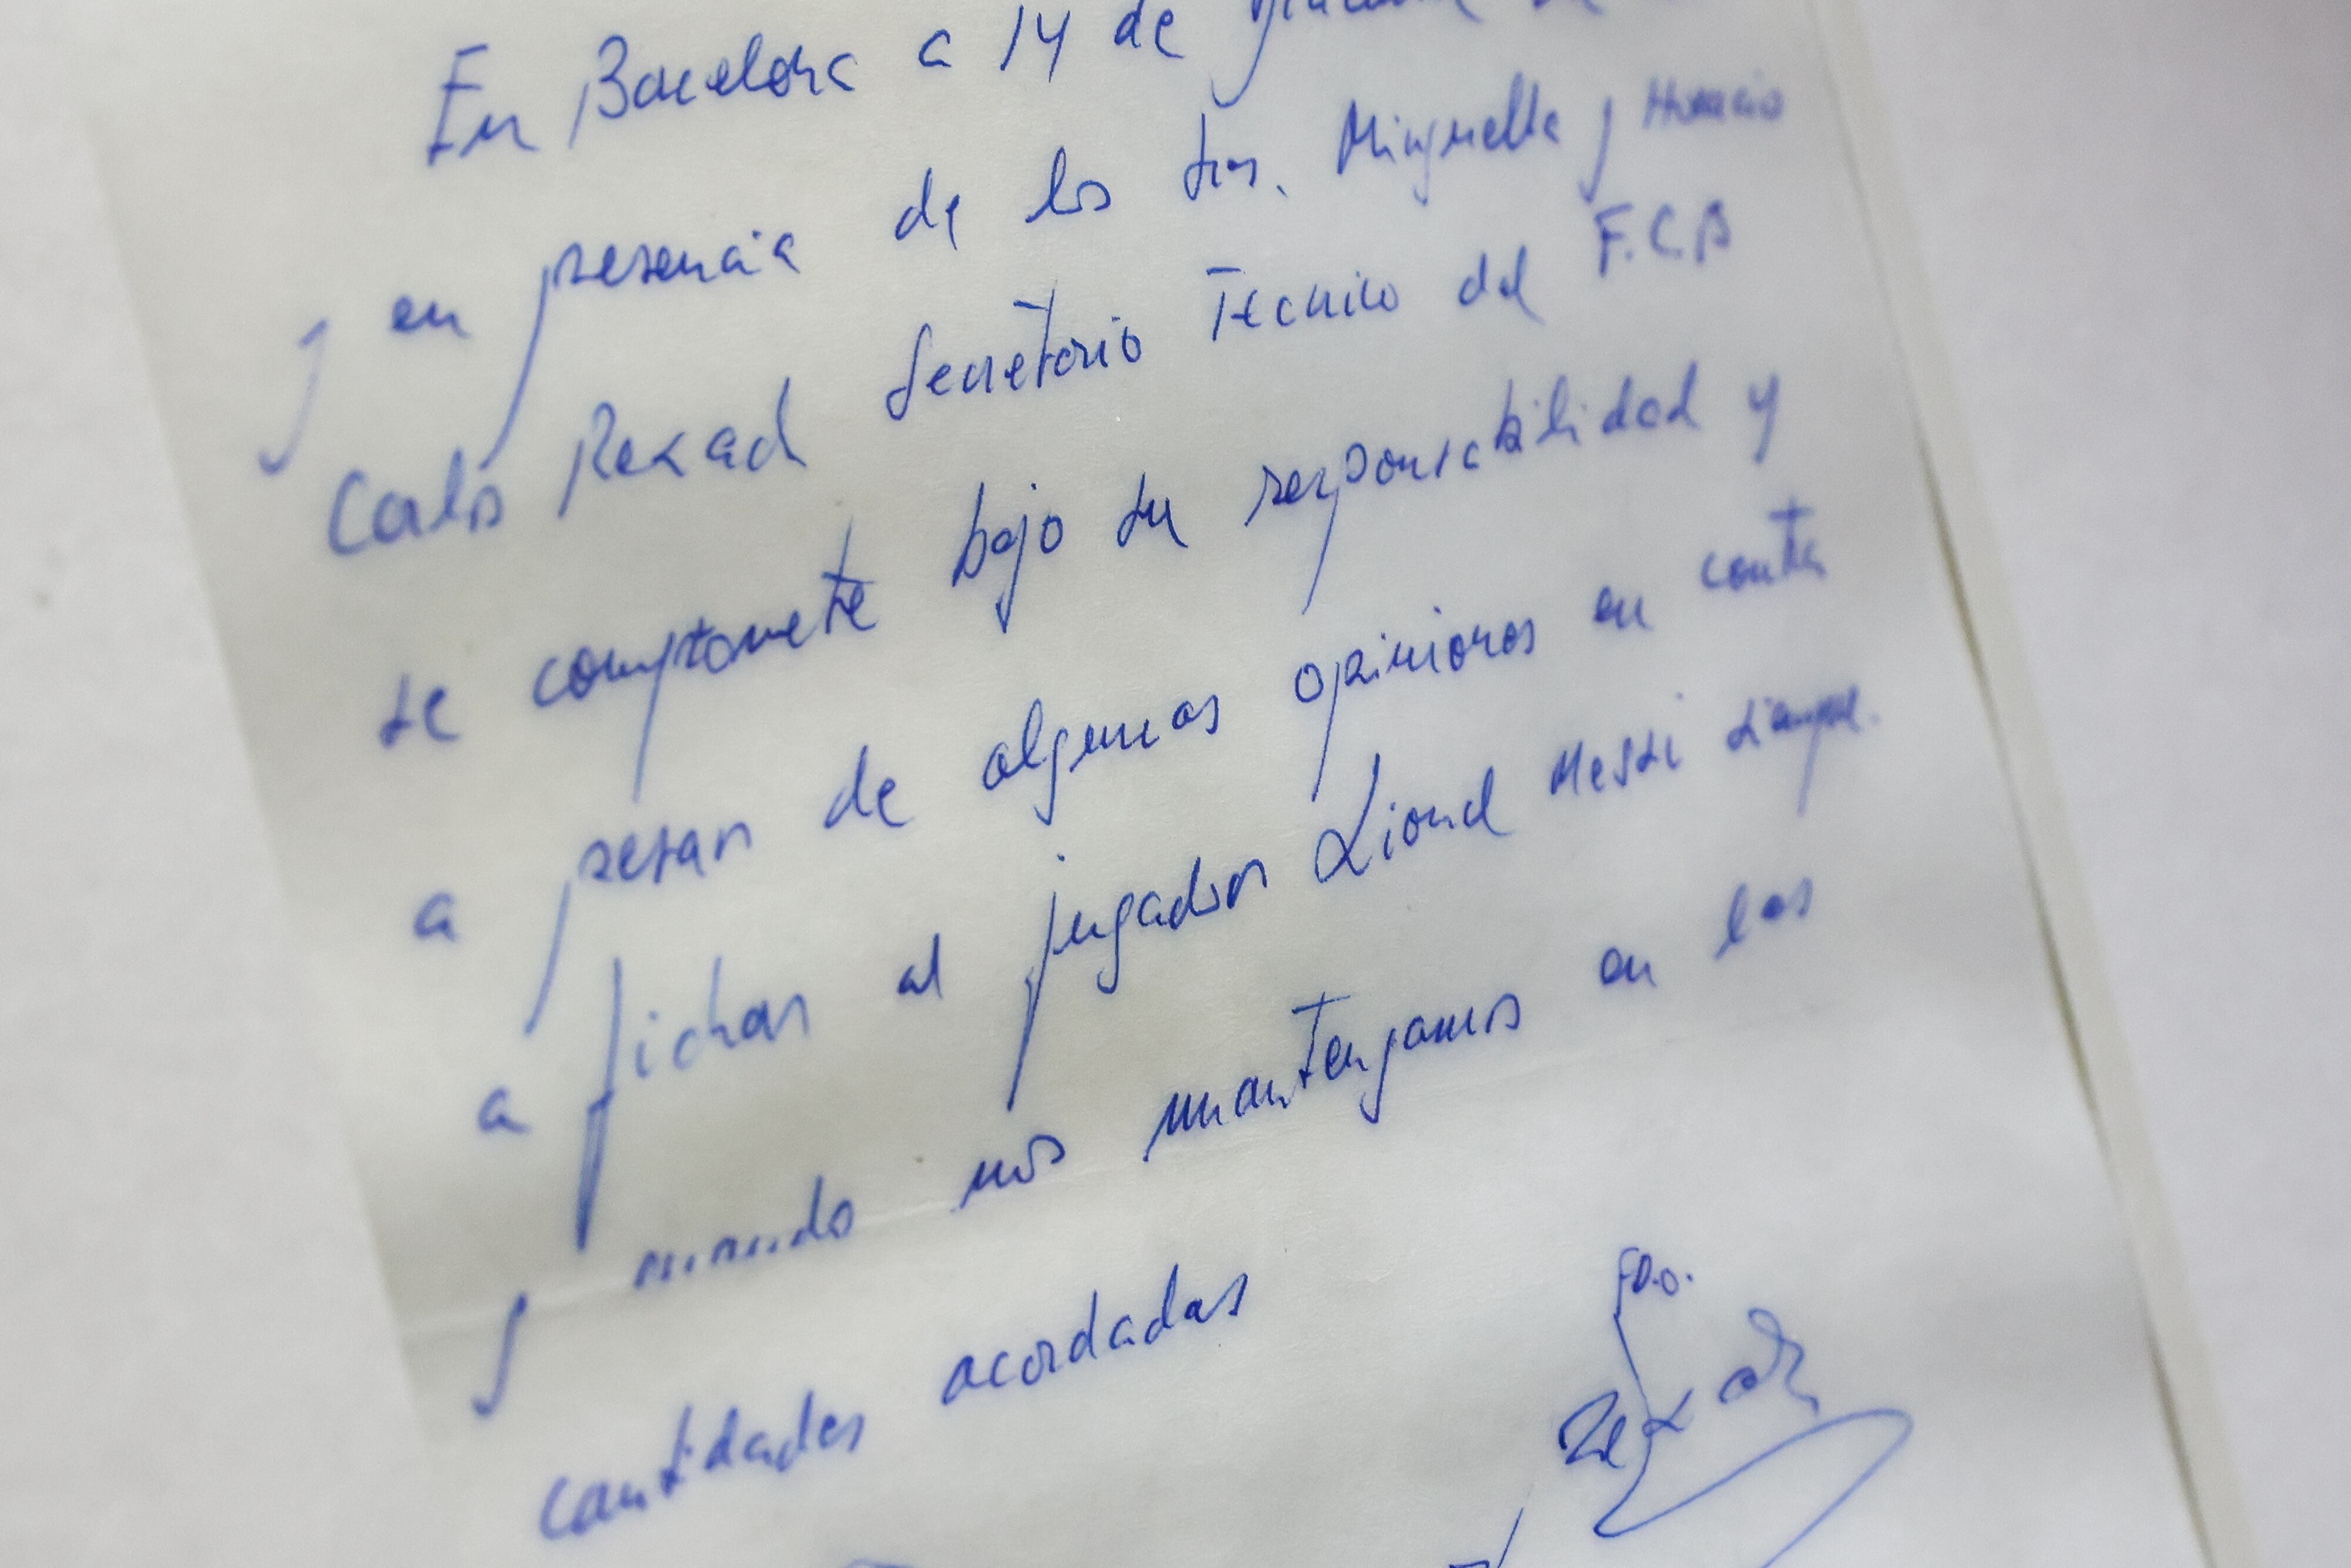 En Barcelona a 14 de
y en presencia de los Srs. Minguella y Horacio
Carlos Rexach Secretario Tecnico del F.C.B
se compromete bajo su responsabilidad y
a pesar de algunas opiniones en contra
a fichar al jugador Lionel Messi siempre
y cuando nos mantengamos en las
cantidades acordadas
Fdo.
Rexach